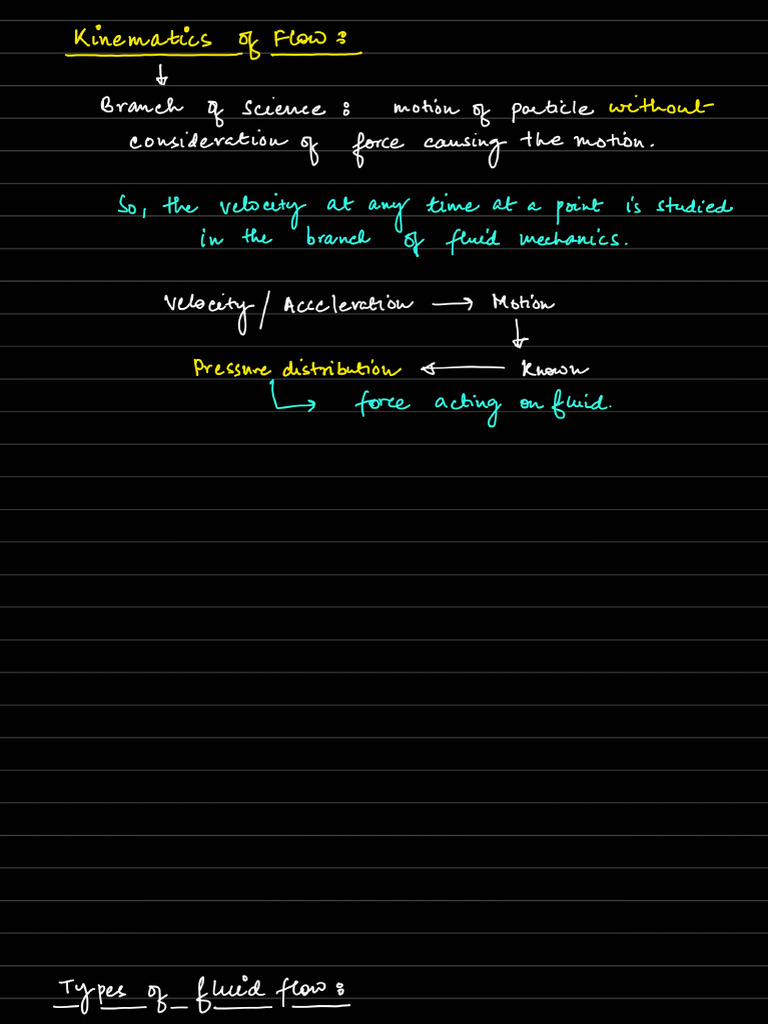 Kinematics of Flow :
↓
Branch of science : motion of particle without
consideration of force causing the motion.
So, the velocity at any time at a point is studied
in the branch of fluid mechanics.
Velocity / Acceleration → Motion
↓
Pressure distribution ← Known
↳ force acting on fluid.
Types of fluid flow :